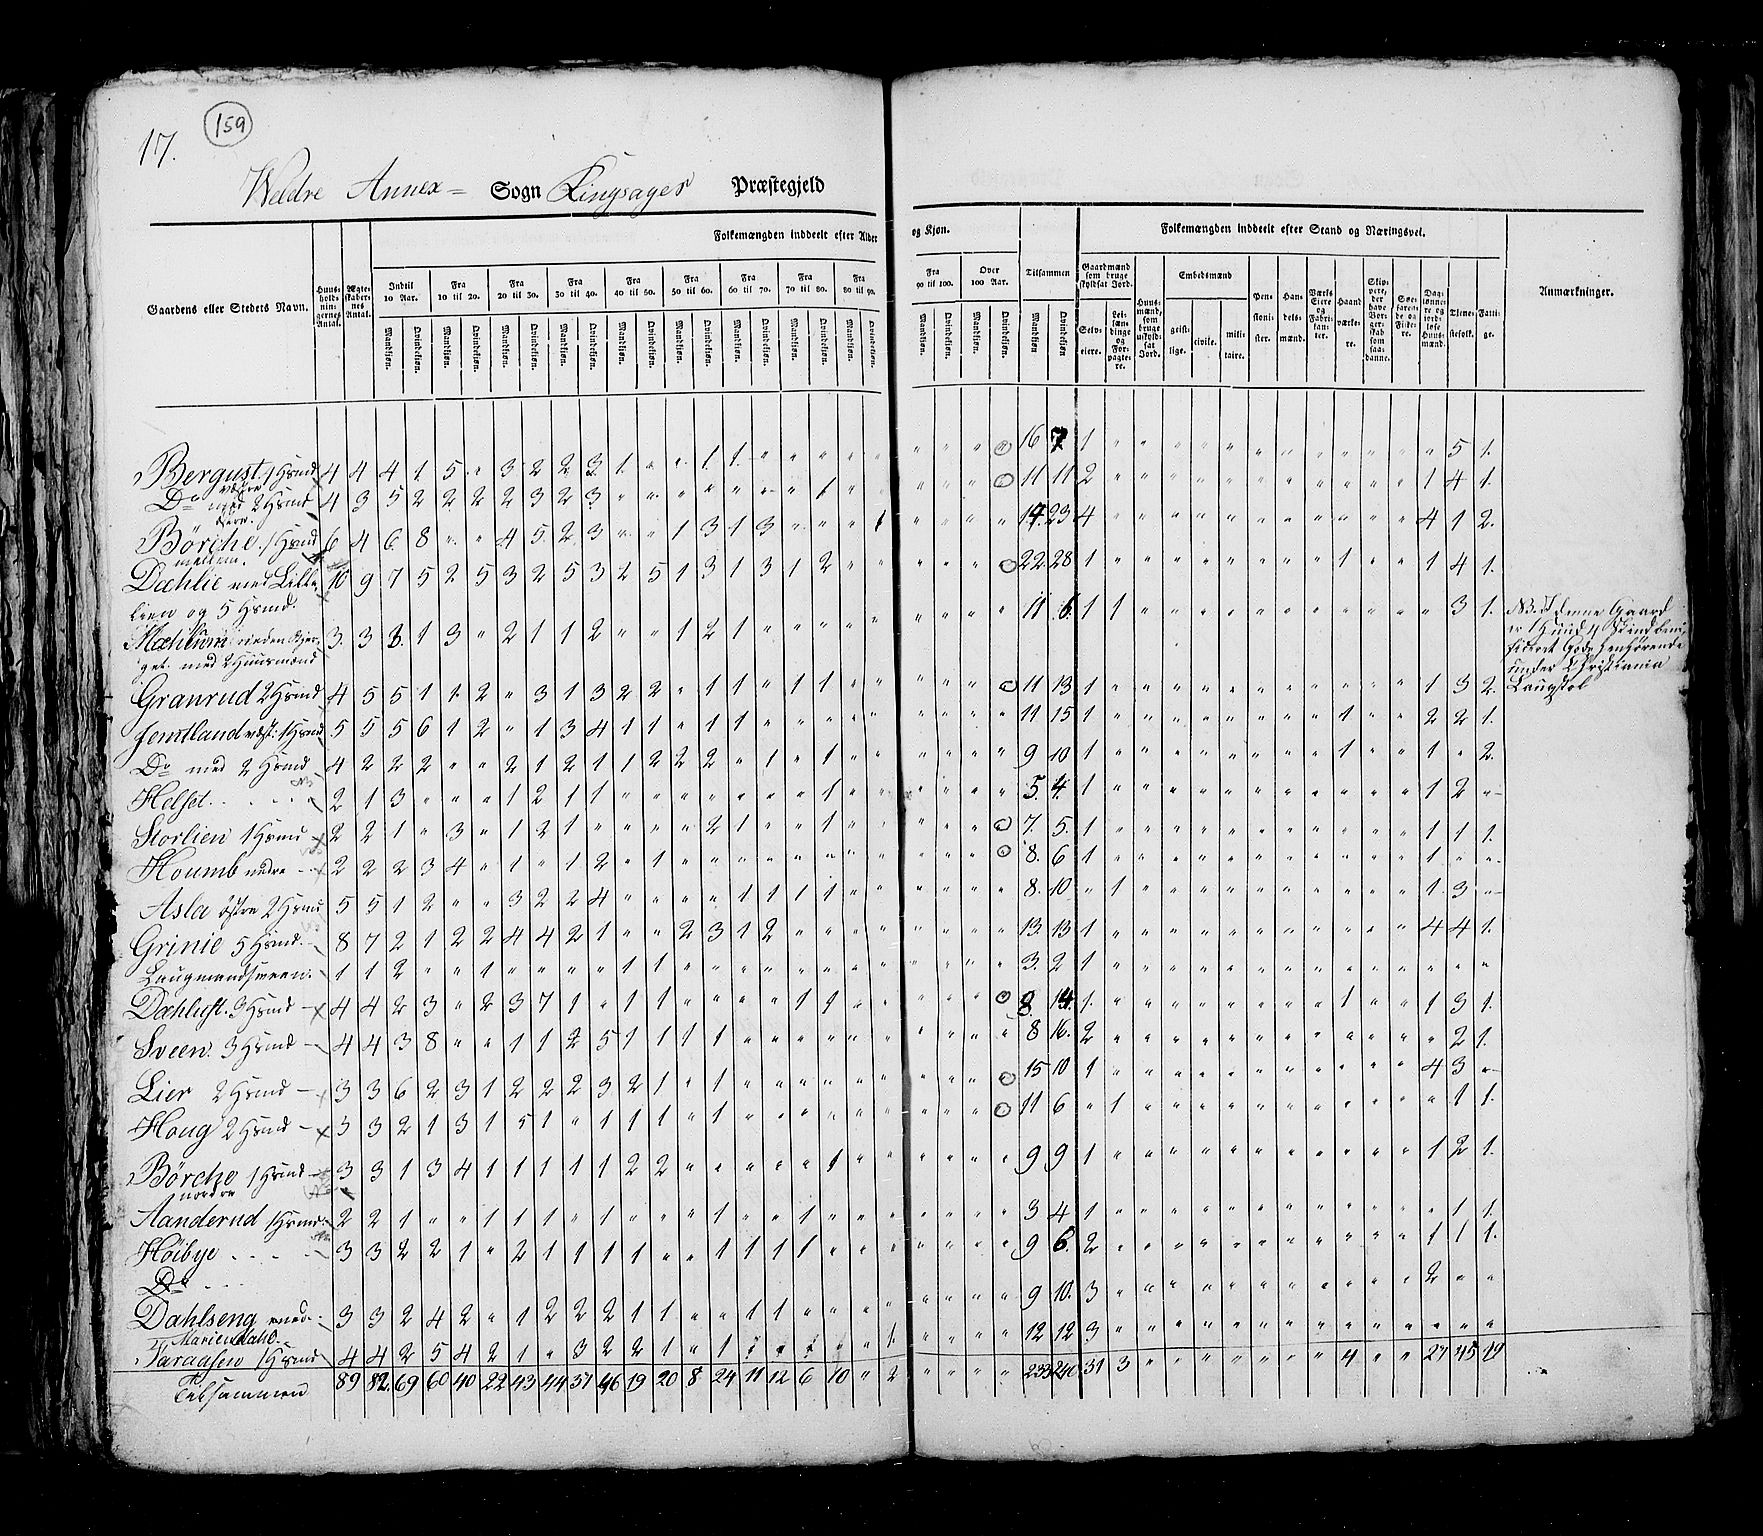 17. 159
Weldre Annex = Sogn Ringsager Præstegjeld
Gaardens eller Stedets Navn.
Huusholdningernes Antal.
Ægteskabernes Antal.
Folkemængden inddeelt efter Alder og Kjøn.
Indtil 10 Aar.
Fra 10 til 20.
Fra 20 til 30.
Fra 30 til 40.
Fra 40 til 50.
Fra 50 til 60.
Fra 60 til 70.
Fra 70 til 80.
Fra 80 til 90.
Fra 90 til 100.
Over 100 Aar.
Mandkjøn. Qvindekjøn.
Tilsammen
Mandkjøn. Qvindekjøn.
Folkemængden inddeelt efter Stand og Næringsvei.
Gaardmænd som bruge skyldsat Jord.
Selveiere.
Leilændinge og Forpagtere.
Huusmænd, som bruge uskyldsat Jord.
Embedsmænd
geistlige. civile. militaire.
Pensionister.
Handelsmænd.
Værks Eiere og Fabrikanter.
Haandværkere.
Skippere, der have Borgerskab som saadanne.
Søefarende og Fiskere.
Daglønnere og jordløse Huusmænd.
Tjenestefolk.
Fattige.
Anmærkninger.
Bergust. 1 Hsmd 4 4 4 1 5 " 3 2 2 3 1 " " 1 1 16 7 1 5 1.
Do med 2 Hsmd 4 3 5 2 2 2 2 3 2 3 " " 1 11 11 2 1 4 1.
Børche 1 Hsmd 6 4 6 8 " " 4 5 2 3 " " 1 3 1 3 " " " " 1 17. 23 4 4 1 2.
Dæhlie med Lille 10 9 7 5 2 5 3 2 5 3 2 5 1 3 1 3 1 2 22 28 1 1 1 4 1.
lien og 5 Hsmd.
Mæhlum neden Bjer 3. 3 3. 1 3 " 2 1 1 2 " " 1 2 1 11 6 1 1 3 1.
get. med 2 Huusmænd
Granrud 2 Hsmd 4 5 5 1 1 2 " 3 1 3 2 2 " 1 1 " 1 1 11 13 1 1 3 2.
Jemtland væst: 1 Hsmd 5 5 5 6 1 2 " 1 3 4 1 1 " 1 1 11 15 1 1 2 2 1.
Do med 2 Hsmd 4 2 2 2 " " 2 1 2 1 1 2 2 2 " 1 " 1 9 10 1 1 1 " 2.
Helset 2 1 3 " " " 1 2 1 1 1 5. 4. 1 1 2 "
Storlien 1 Hsmd 2 2 1 " 3 " 1 2 1 " " " " 2 1 " " 1 7. 5. 1 1 1 1.
Houmb nedre 2 2 2 3 4 " 1 " 1 2 " 1 8. 6 1 1 " "
Asla østre 2 Hsmd 5 5 1 2 " " 3 2 2 4 " " " " 1 1 1 1 8. 10 " 1 1. 3 "
Grinie 5 Hsmd. 8 7 2 1 2 2 4 4 2 1 " " 2 3 1 2 13 13 1 4 4 1.
Laugmandsveen. 1 1 2 " " 1 " " " " 1 1 3. 2 1
Dæhlust. 3 Hsmd 4 4 2 3 " 2 3 7 1 " 1 1 " " " " 1 1 8. 14. 1. 1 1 3 1.
Sveen. 3 Hsmd 4 4 3 8 " " 1 1 2 5 1 1 1 1 8 16. 2 2 1.
Lier 2 Hsmd 3 3 6 2 3 1 2 2 2 3 2 1 " 1 15 10 1 4 3 "
Houg 2 Hsmd 3 3 2 1 3 1 5 1 " 1 1 1 " 1 11 6 " 1 1 1.
Børche 1 Hsmd 3 3 1 3 4 1 1 1 1 1 2 2 " " " " " 1 9 9 1 1 2 1.
nordre
Aanderud 1 Hsmd. 2 2 1 " " 1 1 1 " 1 " " " 1 " 1 3 4 1 1 1.
Høibye 3 3 2 2 1 " 2 1 1 1 1 " " 1 1 1 1 9 6. 2 1 1 1.
Do
Dahlseng med 3 3 2 4 2 " 1 2 2 2 1 1 " " 1 1 9 10. 3 2 " "
Mariendahl.
Taraasen 1 Hsmd 4 4 2 5 4 2 1 " 3 2 2 1 " 1 12 12 3
Tilsammen 89 82. 69 60 40 22 43 44 37 46 19 20 8 24 11 12 6 10 " 2 233 240 31 3 4 27 45 19
er 1 Huud 4 Skind
under Christiania